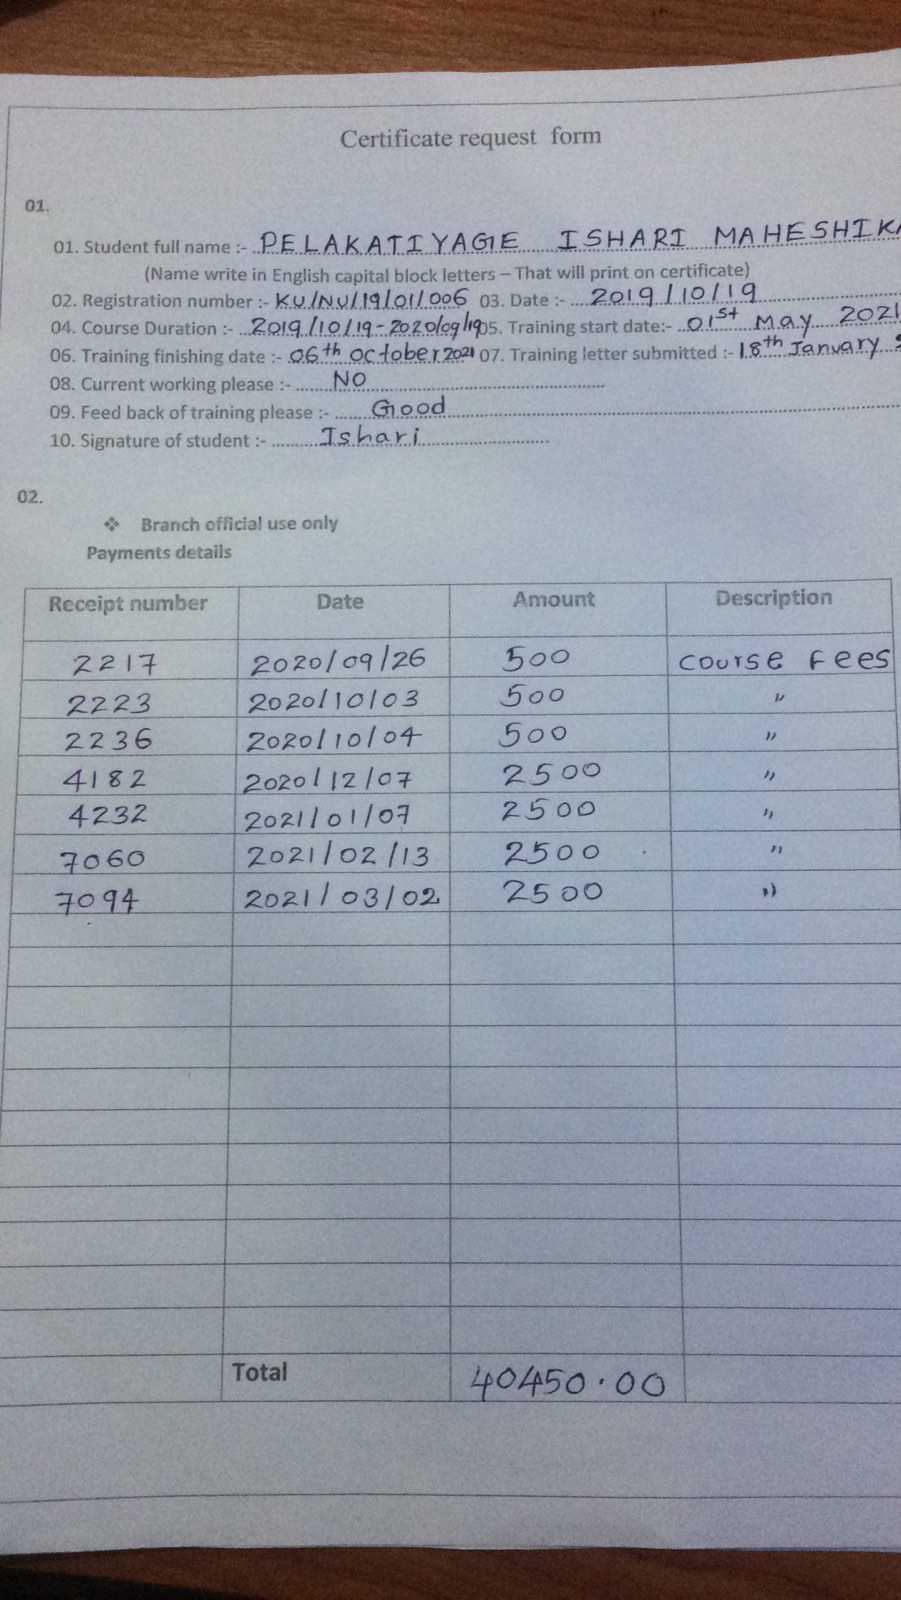 Certificate request form
01.
01. Student full name :- PELAKATIYAGE ISHARI MAHESHIKA
(Name write in English capital block letters – That will print on certificate)
02. Registration number :- KU/NU/19/01/006 03. Date :- 2019/10/19
04. Course Duration :- 2019/10/19-2020/09/19 05. Training start date:- 01st May 2021
06. Training finishing date :- 06th October 2021 07. Training letter submitted :- 18th January
08. Current working please :- NO
09. Feed back of training please :- Good
10. Signature of student :- Ishari
02.
❖ Branch official use only
Payments details
Receipt number Date Amount Description
2217 2020/09/26 500 course Fees
2223 2020/10/03 500 "
2236 2020/10/04 500 "
4182 2020/12/07 2500 "
4232 2021/01/07 2500 "
7060 2021/02/13 2500 "
7094 2021/03/02 2500 "
Total 40450.00